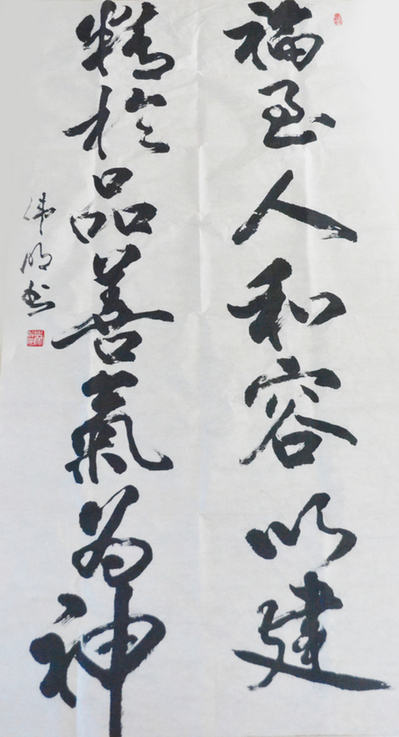 福至人和容以建
精於品善氣為神
偉明書